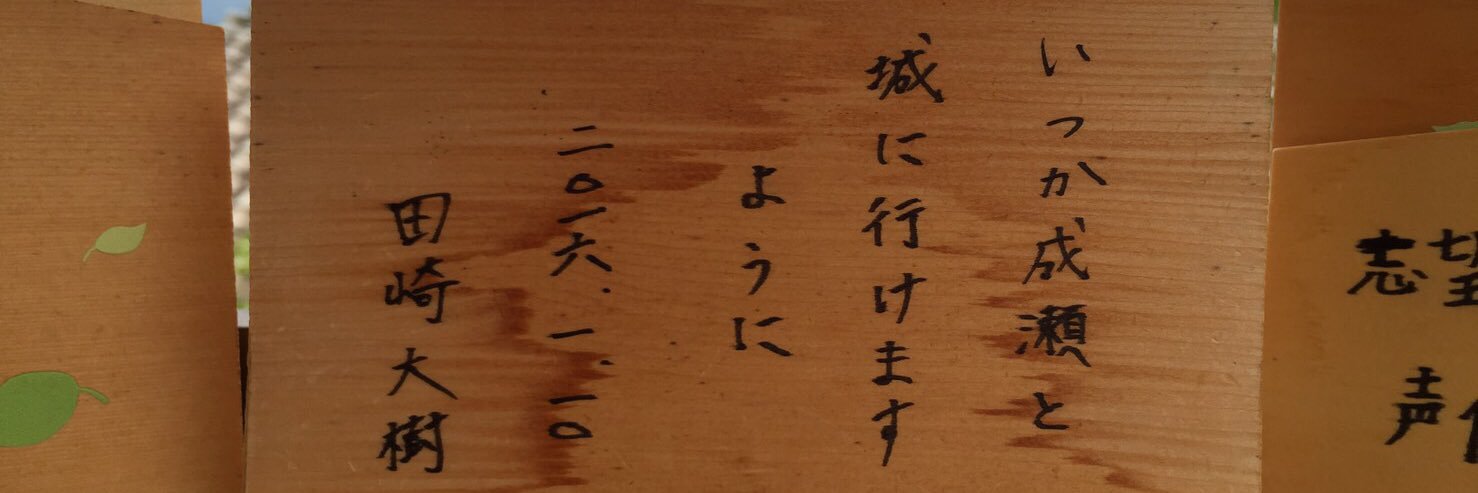 いつか成瀬と
城に行けます
ように
二〇一六.一.一〇
田崎大樹